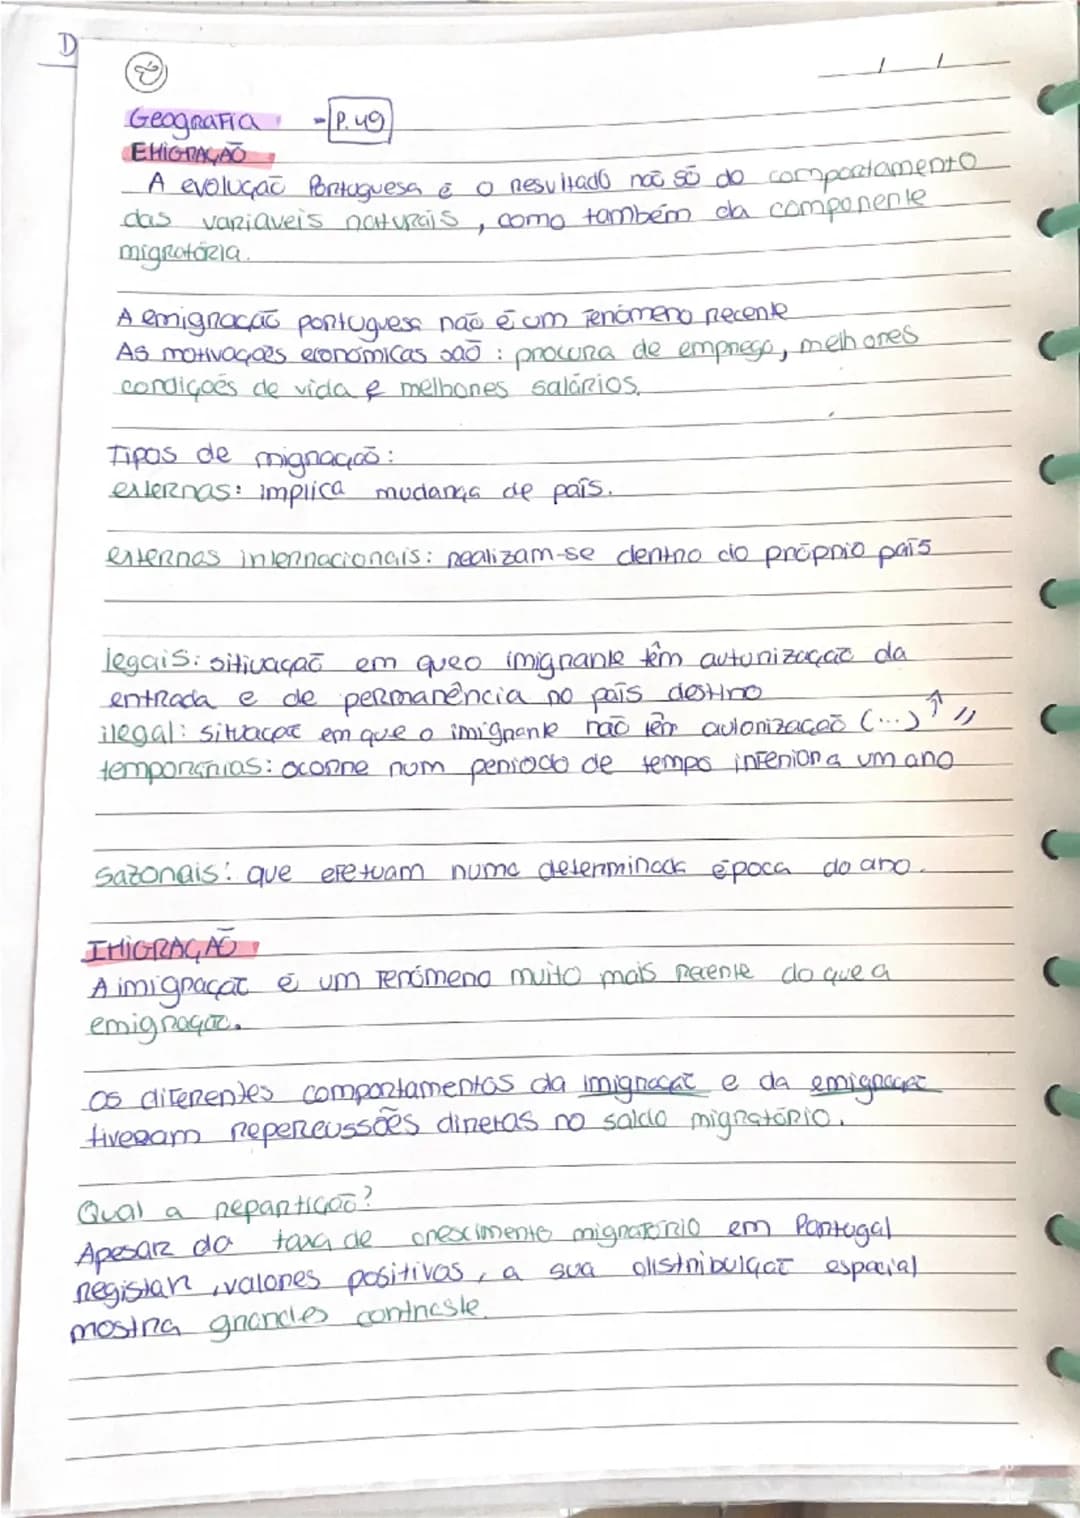 D
Geografia - P.49
EMIGRAÇÃO
A evolução Portuguesa é o resultado não só do comportamento
das variaveis naturais, como também da componente
migratória.
A emigração portuguesa não é um fenómeno recente
As motivações económicas são: procura de emprego, melhores
condições de vida e melhores salários.
Tipos de migração:
externas: implica mudança de país.
externas internacionais: realizam-se dentro do próprio país
legais: sitivação em queo imigrante têm autorização da
entrada e de permanência no país destino
ilegal: situação em que o imigrante não têm autorização (...) ↑ //
temporárias: ocorre num período de tempo inferior a um ano
sazonais: que efetuam numa determinada época do ano.
IMIGRAÇÃO
A imigração é um fenómeno muito mais recente do que a
emigração.
Os diferentes comportamentos da imigração e da emigração
tiveram repercussões diretas no saldo migratório.
Qual a repartição?
Apesar da taxa de crescimento migratório em Portugal
registar, valores positivos, a sua distribuição espacial
mostra grandes contraste.